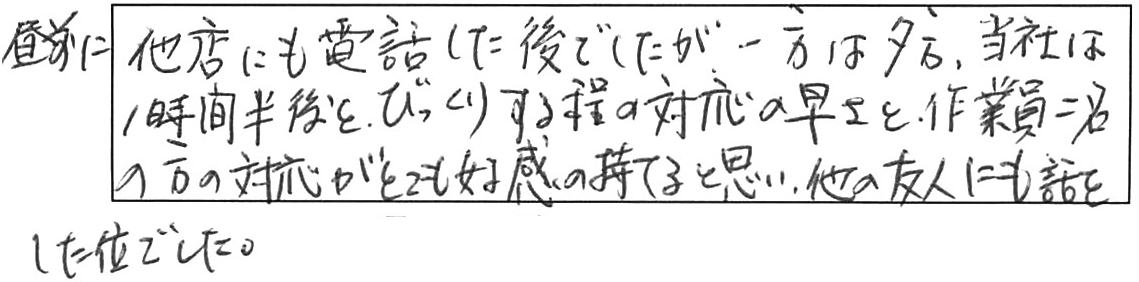 昼前に他店にも電話した後でしたが、一方は夕方、当社は
1時間半後と、びっくりする程の対応の早さと、作業員二名
の方の対応がとても好感の持てると思い、他の友人にも話を
した位でした。